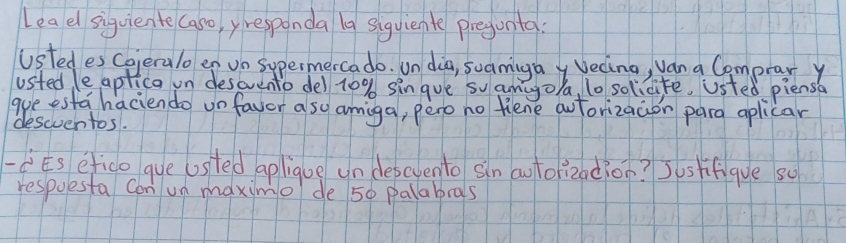 Lea el siguiente caso, y responda la siguiente pregunta:
Usted es Cajera/o en un supermercado. un dia, su amiga y vecina, van a Comprar y
usted le aplica un descuento del 10% sin que su amigo/a lo solicite. Usted piensa
que está haciendo un favor a su amiga, pero no tiene autorización para aplicar
descuentos.
- ¿Es ético que usted aplique un descuento sin autorizadion? Justifique su
respuesta Con un maximo de 50 palabras